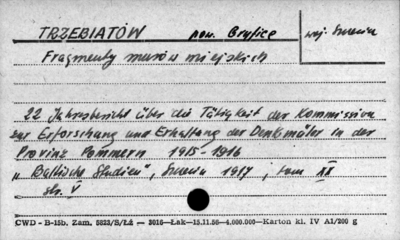 TRZEBIATÓW pow. Gryfice woj. Szczecin
Fragmenty murów miejskich
22 Jahresbericht über die Tätigkeit der Kommission
zur Erforschung und Erhaltung der Denkmäler in der
Provinz Pommern 1915-1916
„Baltische Studien", Szczecin 1917; tom XX
str. V
CWD - B-15b, Zam. 5823/S/ŁŻ — 3016—Łak—15.11.56—4.000.000—Karton kl. IV A1/200 g